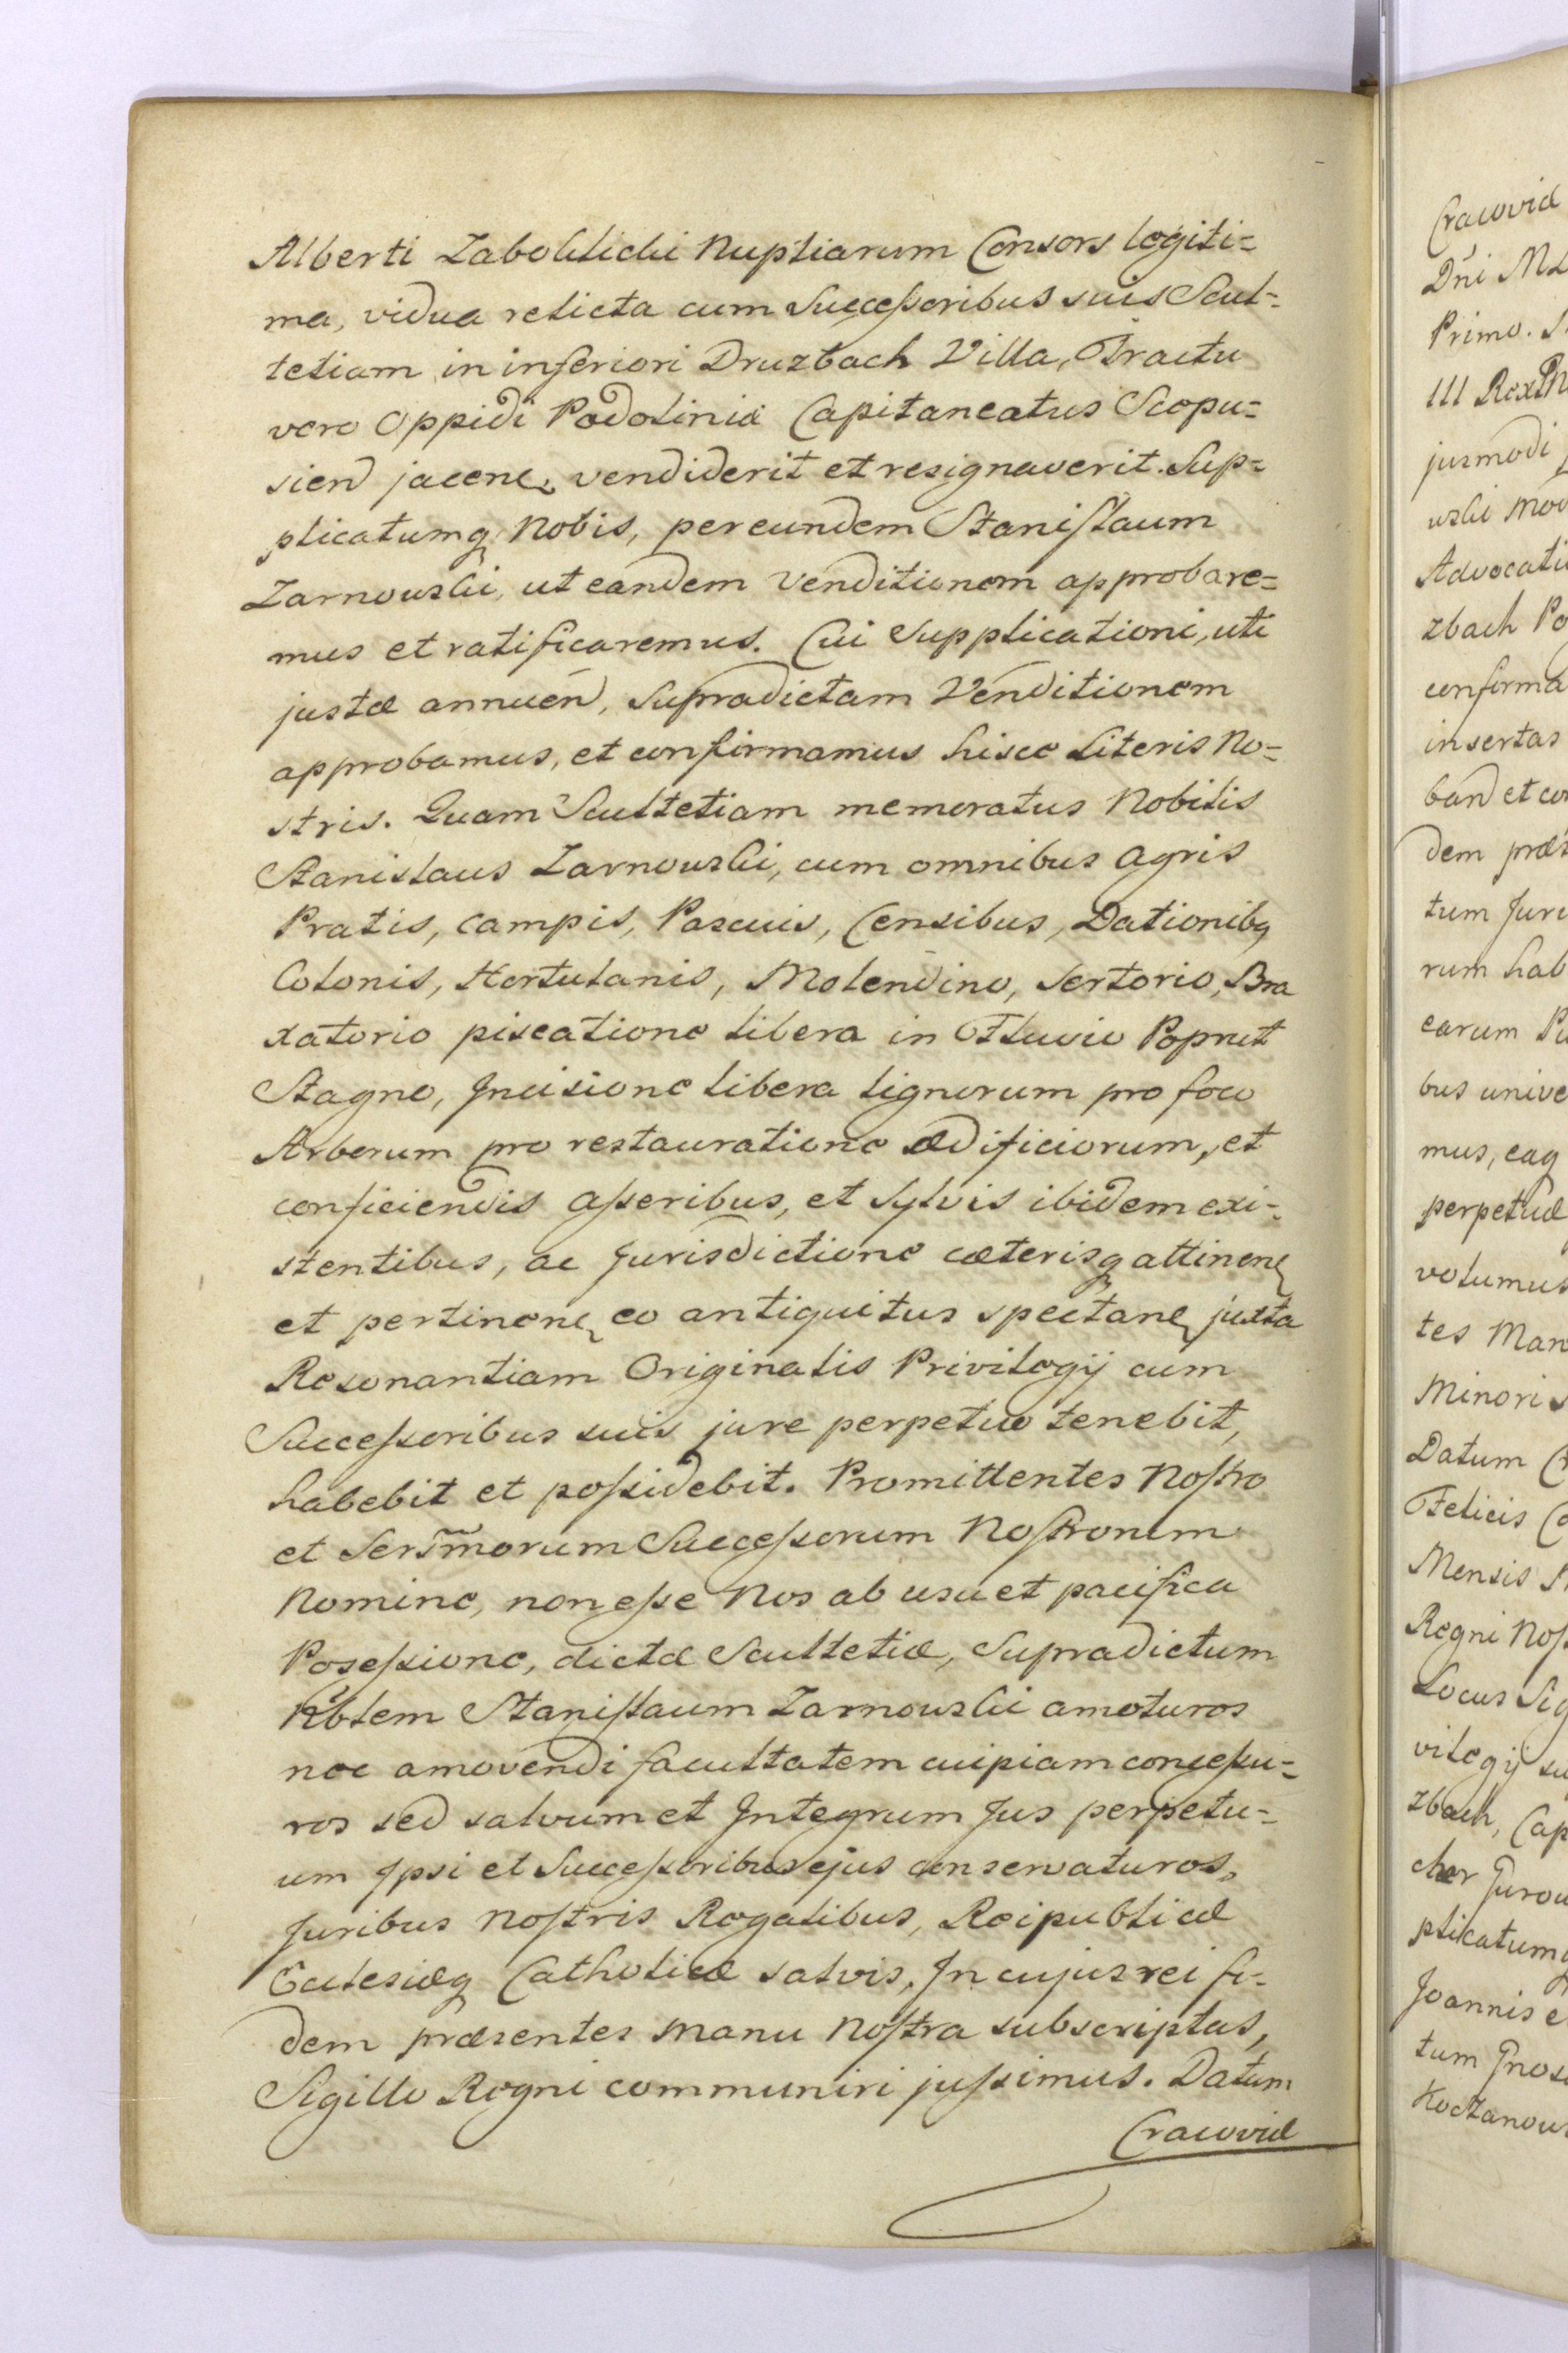 Alberti Zaboklicki Nuptiarum Consors legiti=
ma, vidua relicta cum Successoribus suis Scul=
tetiam in inferiori Druzbach Villa, Tractu
vero Oppidi Podoliniæ Capitaneatus Scepu=
sien jacen, vendiderit et resignaverit. Sup=
plicatumq Nobis, per eundem Stanislaum
Zarnowski, ut eandem Venditionem approbare=
mus et ratificaremus. Cui Supplicationi, uti
justæ annuen, Supradictam Venditionem
approbamus, et confirmamus hisce Literis No=
stris. Quam Scultetiam memoratus Nobilis
Stanislaus Zarnowski, cum omnibus Agris
Pratis, Campis, Pascuis, Censibus, Dationibq
Colonis, Hortulanis, Molendino, Sertorio, Bra
xatorio piscatione libera in Fluvio Poprut
Stagno, Incisione libera lignorum pro foco
Arborum pro restauratione Ædificiorum, et
conficiendis Asseribus, et Sylvis ibidem exi=
stentibus, ac Jurisdictione cæterisq attinen
et pertinen eo antiquitus spectan juxta
Resonantiam Originalis Privilegij cum
Successoribus suis jure perpetuo tenebit,
habebit et possidebit. Promittentes Nostro
et Sersmorum Successorum Nostrorum
Nomine, non esse Nos ab usu et pacifica
Posessione, dictæ Scultetiæ, Supradictum
Nblem Stanislaum Zarnowski amoturos
nec amovendi facultatem cuipiam concessu=
ros sed salvum et Integrum Jus perpetu=
um Ipsi et Successoribus ejus conservaturos,
Juribus Nostris Regalibus, Reipublicæ
Eclesiæq Catholicæ salvis. In cujus rei fi=
dem præsentes Manu Nostra subscriptas,
Sigillo Regni communiri jussimus. Datum
Cracoviæ
Cracoviæ
Dni
Primo.
III Rex
jusmodi
Advocati
zbach
confirma
insertas
band et
dem
tum Juri
rum hab
earum
bus unive
mus, eaq
perpetuæ
volumus
tes Man
Minori
Datum
Felicis
Mensis
Regni Nos
Locus Sig
vilegij su
zbach, Cap
plicatum
Joannis e
tum